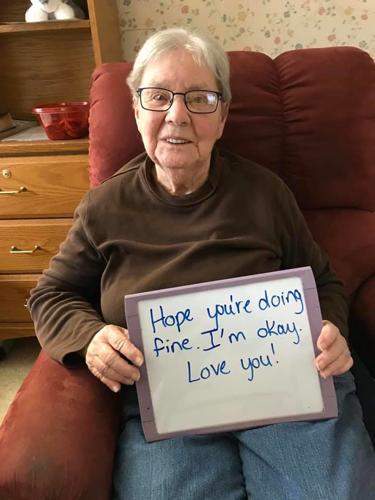 Hope you're doing
fine. I'm okay.
Love you!